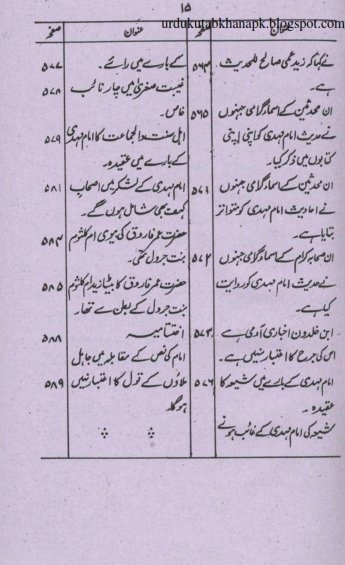 ۱۵
urdukutabkhanapk.blogspot.com
عنوان صفحہ
نے کہا کہ زید عمی صالح للحدیث ۵۶۳
ہے۔
ان محدثین کے اسماء گرامی جنہوں ۵۶۵
نے حدیث امام مہدی کو اپنی اپنی
کتابوں میں ذکر کیا۔
ان محدثین کے اسماء گرامی جنہوں ۵۷۱
نے احادیث امام مہدی کو متواتر
بتایا ہے
ان صحابہ کرام کے اسماء گرامی جنہوں ۵۷۲
نے حدیث امام مہدی کو روایت
کیا ہے۔
ابن خلدون اخباری آدمی ہے ۵۷۳
اس کی جرح کا اعتبار نہیں ہے۔
امام مہدی کے بارے میں شیعہ کا ۵۷۶
عقیدہ۔
شیعہ کی امام مہدی کے غائب ہونے
عنوان صفحہ
کے بارے میں رائے۔ ۵۷۷
غیبت صغریٰ میں چار نائب ۵۷۸
خاص۔
اہل سنت والجماعت کا امام مہدی ۵۷۹
کے بارے میں عقیدہ۔
امام مہدی کے لشکر میں اصحاب ۵۸۱
کہف بھی شامل ہوں گے۔
حضرت عمر فاروق کی بیوی ام کلثوم ۵۸۴
بنت جرول تھی۔
حضرت عمر فاروق کا بیٹا زید ام کلثوم ۵۸۵
بنت جرول کے بطن سے تھا۔
اختتامیہ ۵۸۸
امام کی نص کے مقابلہ میں جاہل
ملاؤں کے قول کا اعتبار نہیں ۵۸۹
ہوگا۔